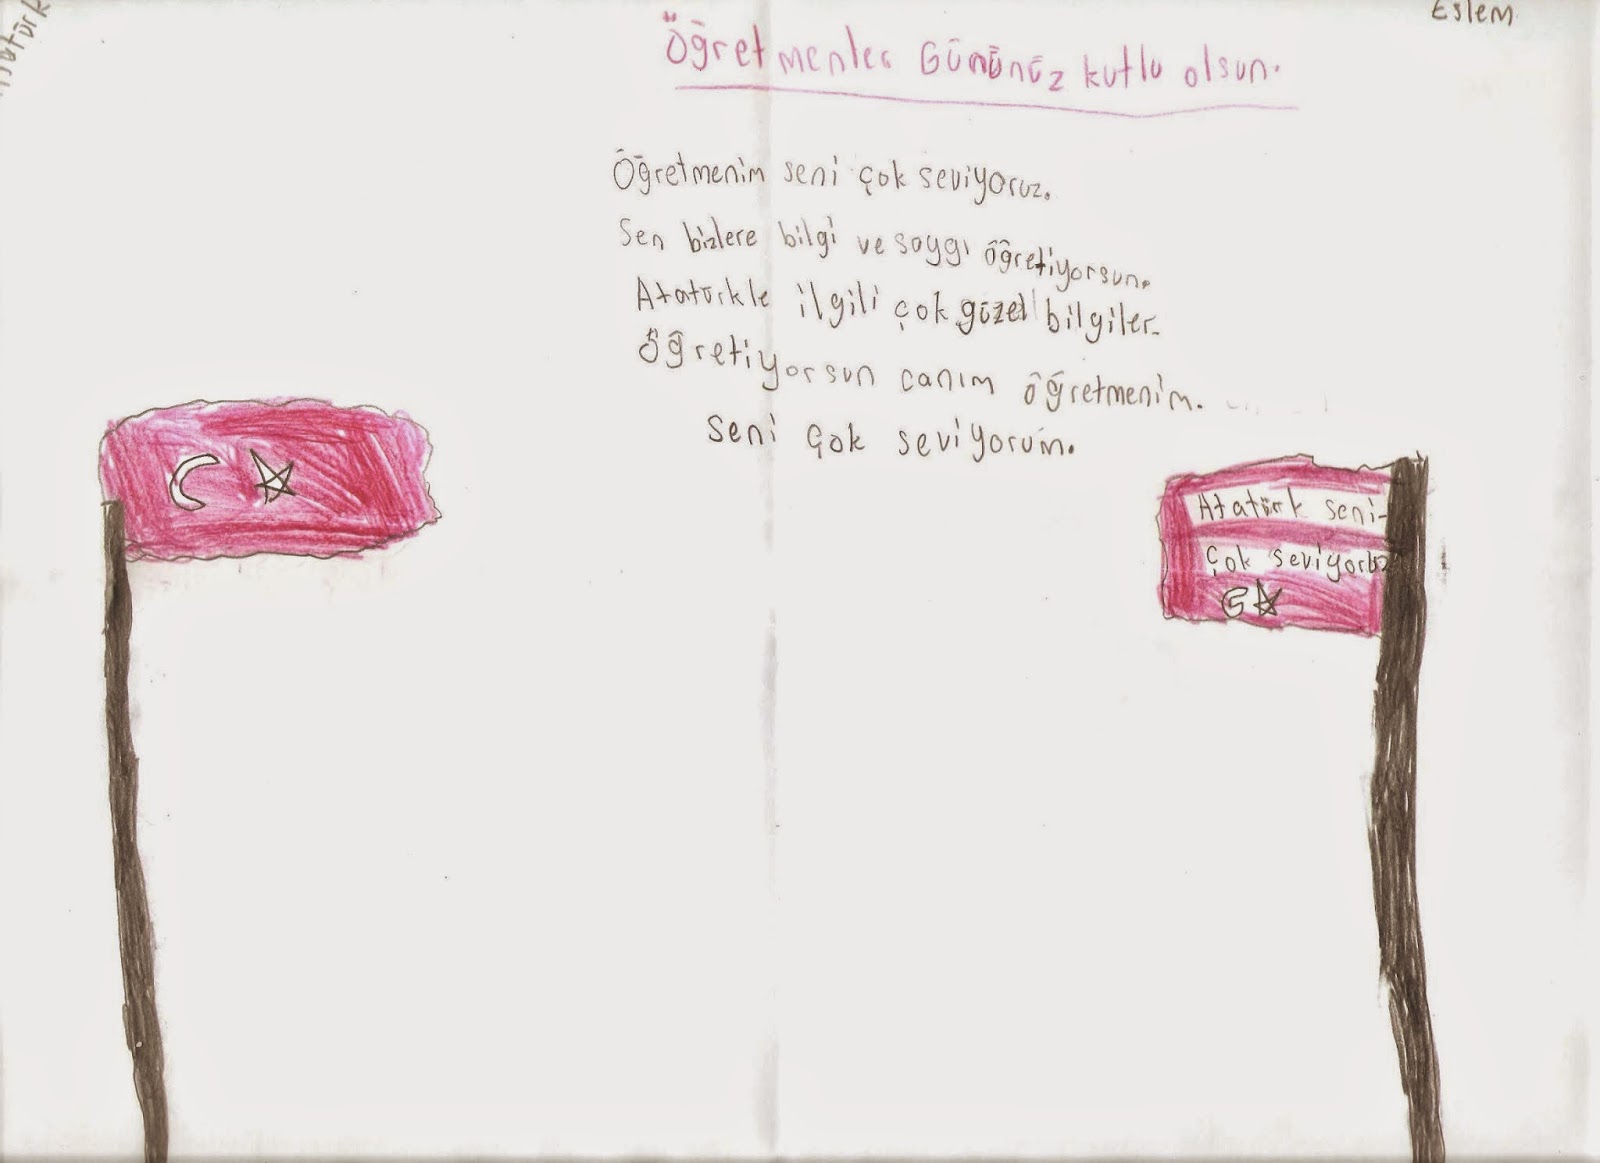 Eslem
Öğretmenler Gününüz kutlu olsun.
Öğretmenim seni çok seviyoruz.
Sen bizlere bilgi ve saygı öğretiyorsun.
Atatürkle ilgili çok güzel bilgiler
Öğretiyorsun canım öğretmenim.
Seni çok seviyorum.
Atatürk seni-
çok seviyoruz